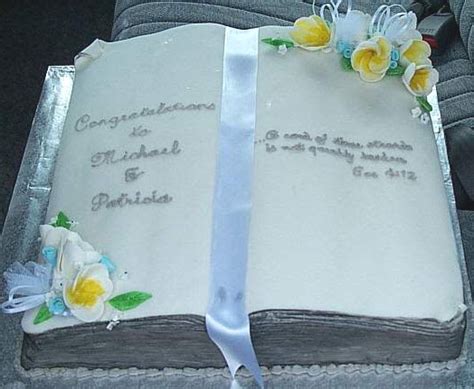 Congratulations
to
Michael
&
Patricia
...A cord of three strands
is not quickly broken
Ecc 4:12